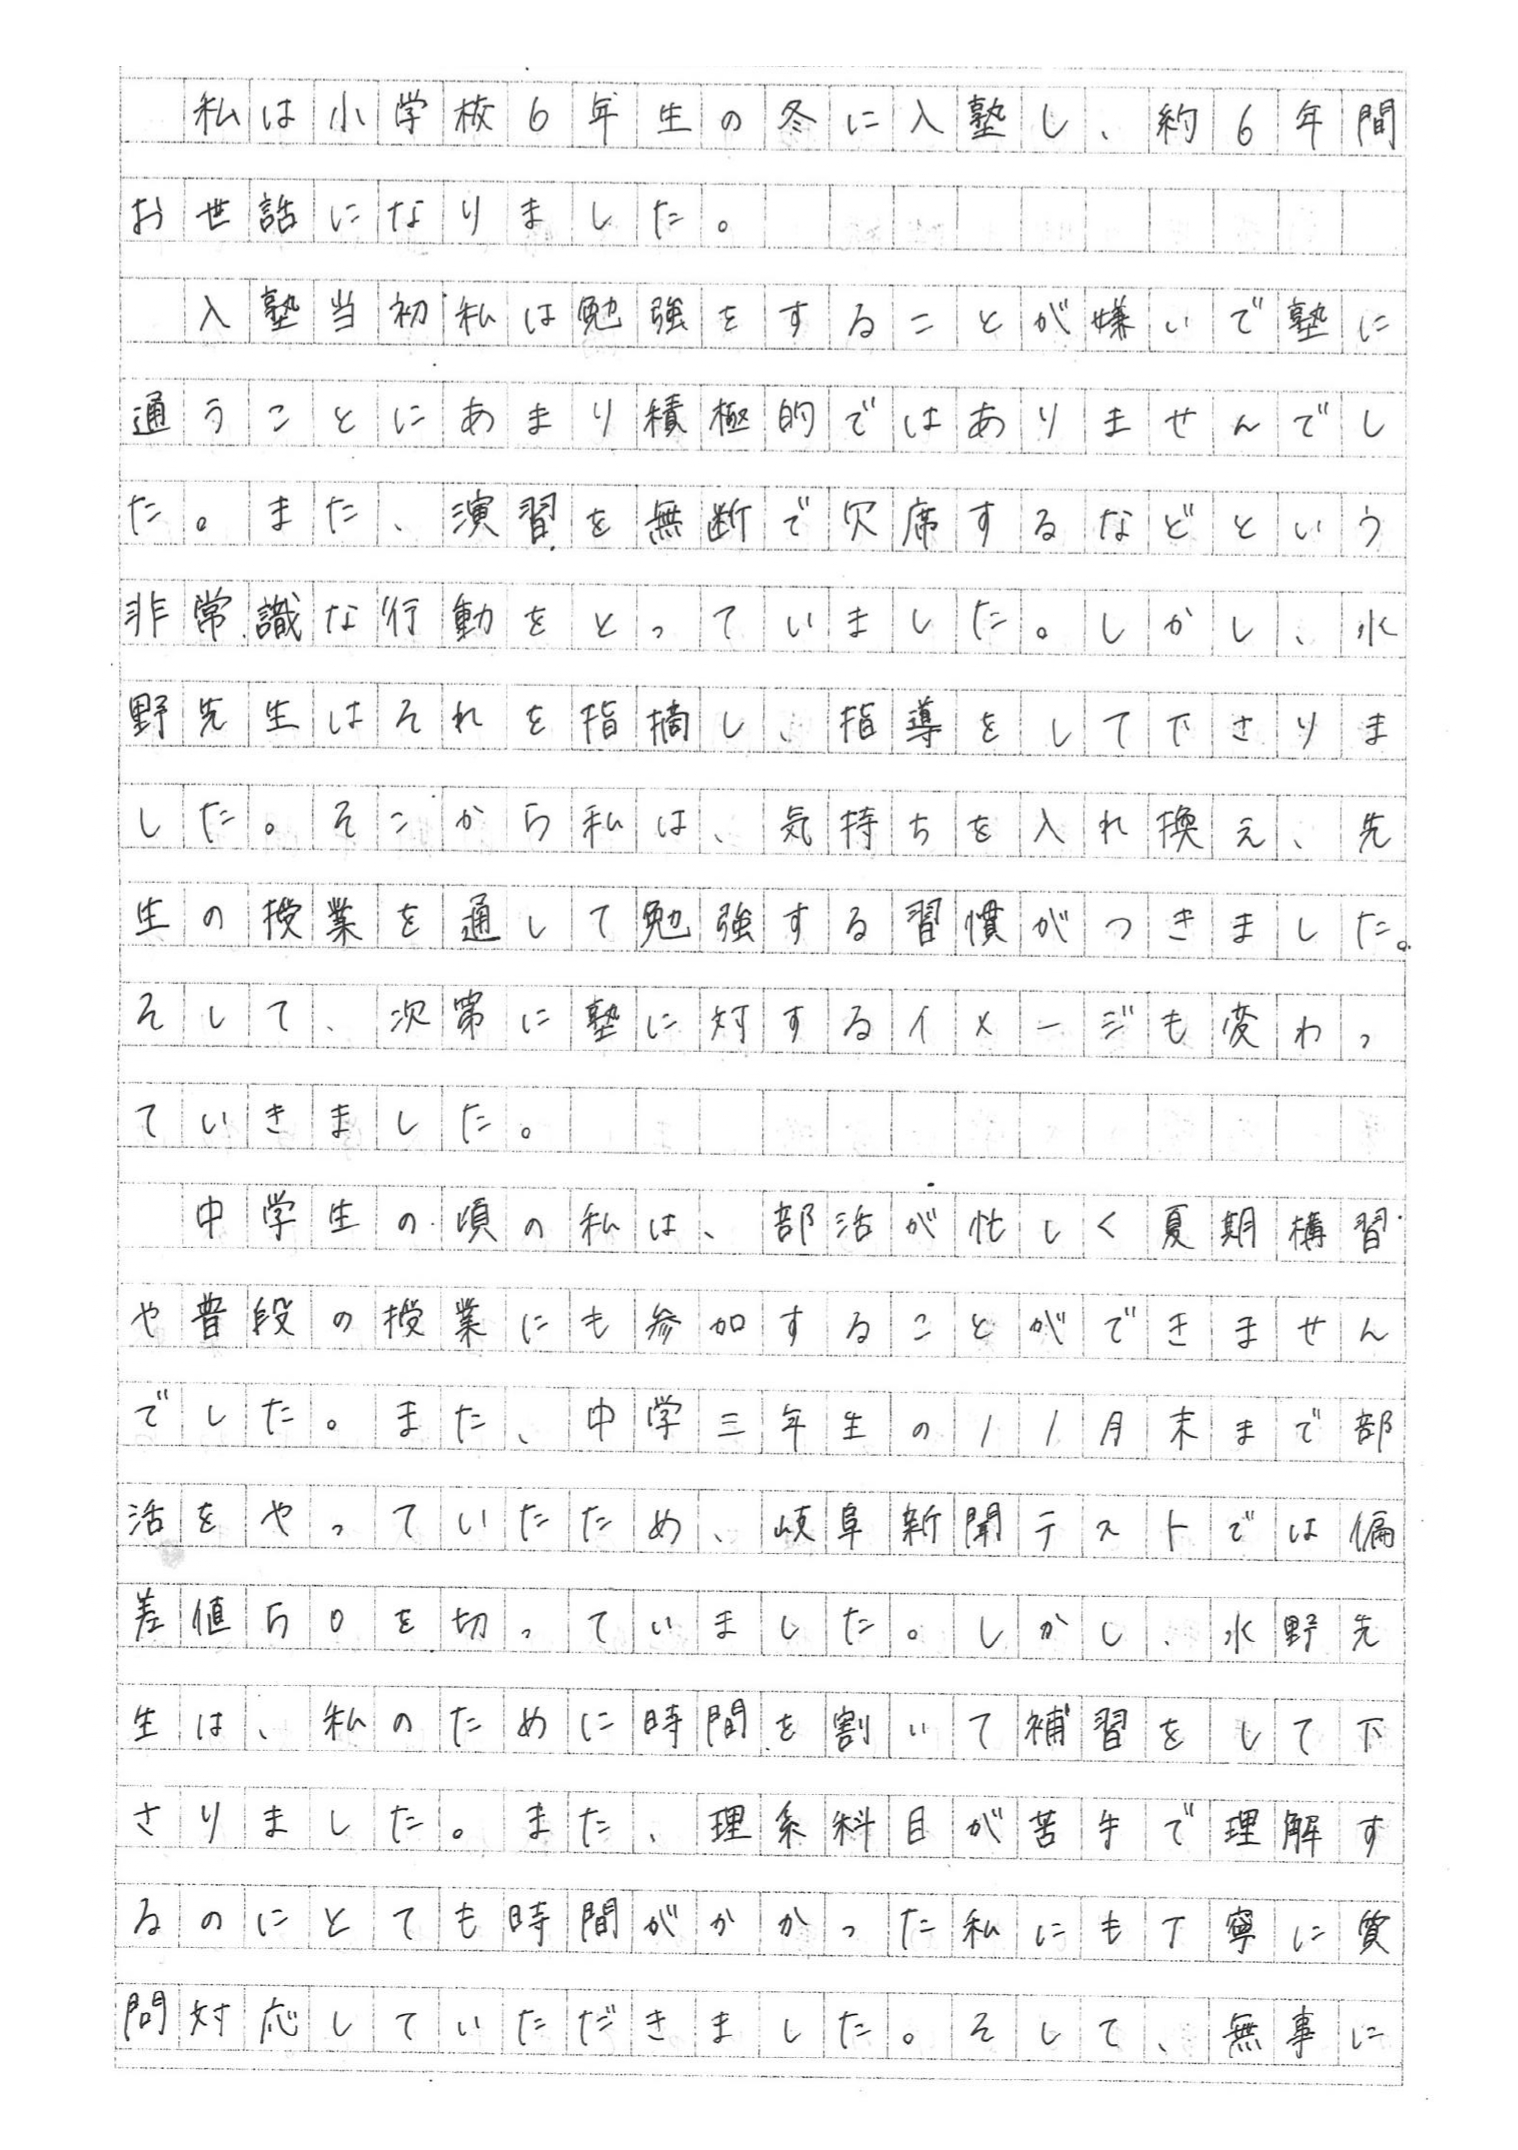 私は小学校6年生の冬に入塾し、約6年間
お世話になりました。
　入塾当初私は勉強をすることが嫌いで塾に
通うことにあまり積極的ではありませんでし
た。また、演習を無断で欠席するなどという
非常識な行動をとっていました。しかし、水
野先生はそれを指摘し、指導をして下さりま
した。そこから私は、気持ちを入れ換え、先
生の授業を通して勉強する習慣がつきました。
そして、次第に塾に対するイメージも変わっ
ていきました。
　中学生の頃の私は、部活が忙しく夏期構習
や普段の授業にも参加することができません
でした。また、中学三年生の11月末まで部
活をやっていたため、岐阜新聞テストでは偏
差値50を切っていました。しかし、水野先
生は、私のために時間を割いて補習をして下
さりました。また、理系科目が苦手で理解す
るのにとても時間がかかった私にも丁寧に質
問対応していただきました。そして、無事に